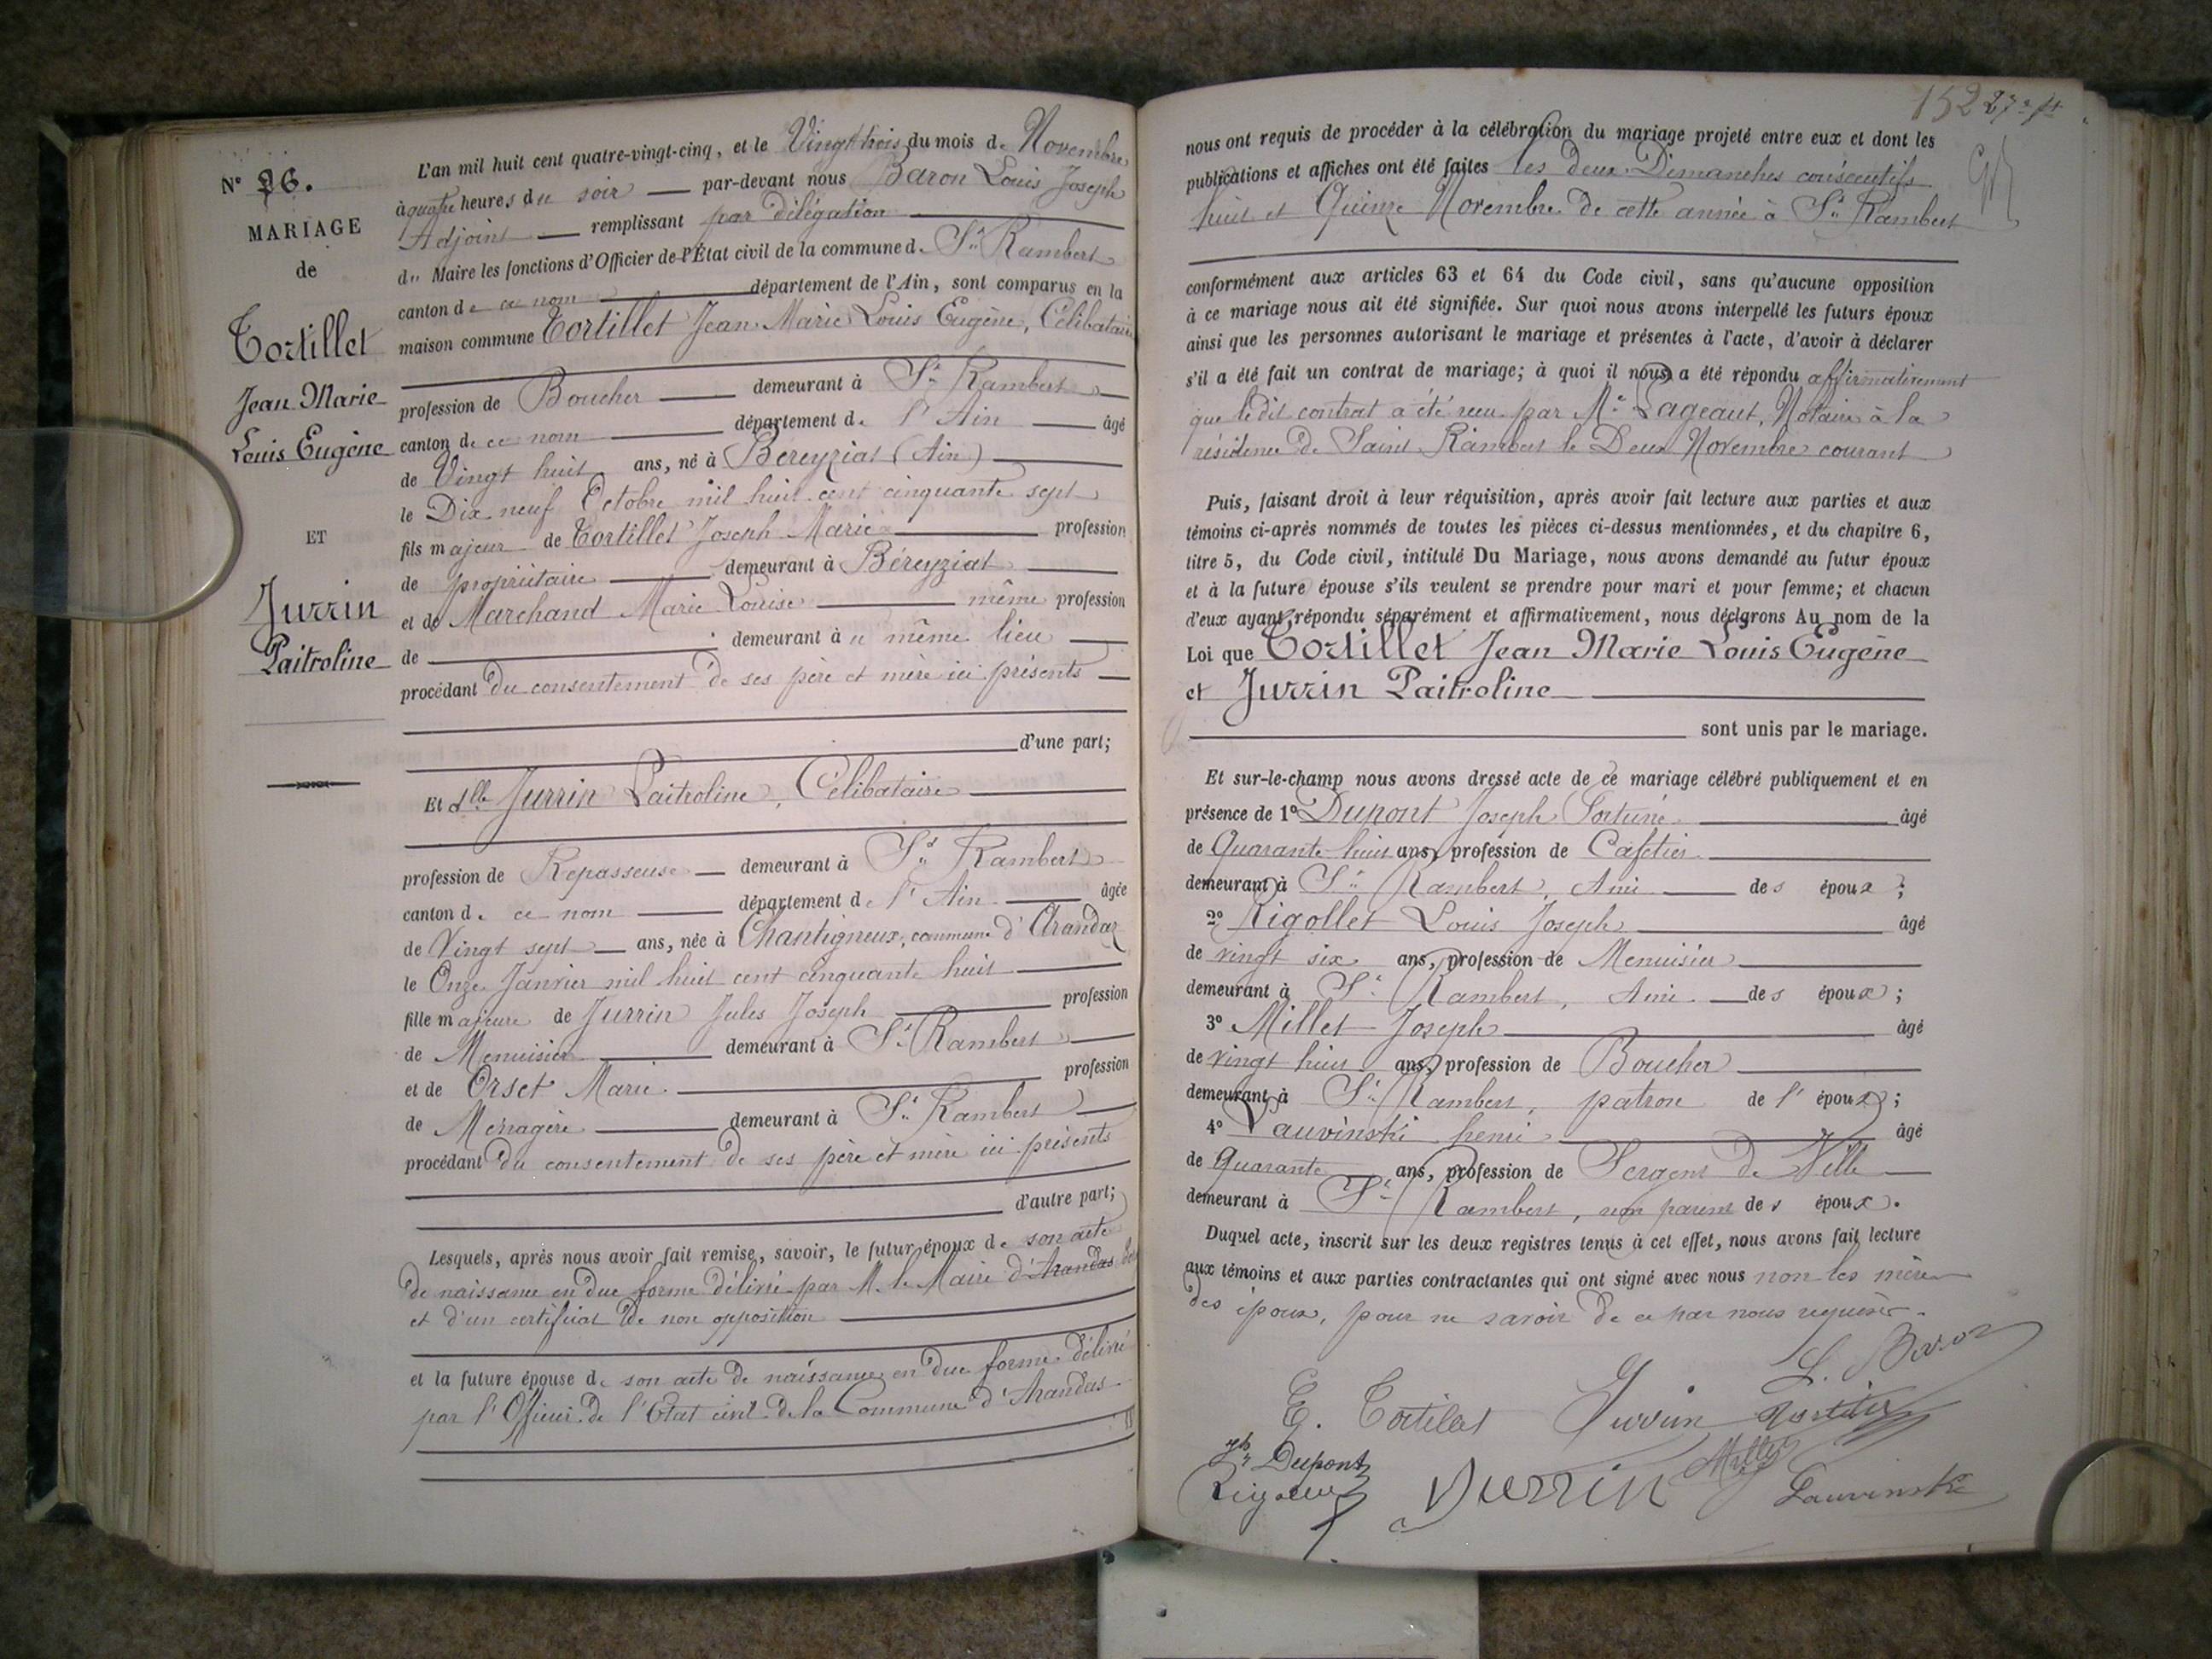 N° 26.
MARIAGE
de
Tortillet
Jean Marie
Louis Eugène
ET
Jurrin
Paitroline
L'an mil huit cent quatre-vingt-cinq, et le Vingt trois du mois de Novembre
à quatre heures du soir — par-devant nous Baron Louis Joseph
Adjoint — remplissant par délégation
du Maire les fonctions d'Officier de l'État civil de la commune de St Rambert
canton de ce nom département de l'Ain, sont comparus en la
maison commune Tortillet Jean Marie Louis Eugène, Célibataire
profession de Boucher — demeurant à St Rambert
canton de ce nom — département de l'Ain — âgé
de Vingt huit ans, né à Béreyziat (Ain)
le Dix neuf Octobre mil huit cent cinquante sept
fils majeur de Tortillet Joseph Marie profession
de propriétaire — demeurant à Béreyziat
et de Marchand Marie Louise — même profession
de — demeurant à ce même lieu
procédant du consentement de ses père et mère ici présents
d'une part;
Et dlle Jurrin Paitroline, Célibataire
profession de Repasseuse — demeurant à St Rambert
canton de ce nom — département de l'Ain — âgée
de Vingt sept — ans, née à Chantigneux, commune d'Arandaz
le Onze Janvier mil huit cent cinquante huit
fille majeure de Jurrin Jules Joseph profession
de Menuisier — demeurant à St Rambert
et de Orset Marie profession
de Ménagère — demeurant à St Rambert
procédant du consentement de ses père et mère ici présents
d'autre part;
Lesquels, après nous avoir fait remise, savoir, le futur époux de son acte
de naissance en due forme délivré par M. le Maire d'Arandas
et d'un certificat de non opposition
et la future épouse de son acte de naissance en due forme délivré
par l'Officier de l'Etat civil de la Commune d'Arandas
152
nous ont requis de procéder à la célébration du mariage projeté entre eux et dont les
publications et affiches ont été faites les deux Dimanches consécutifs
huit et Quinze Novembre de cette année à St Rambert
conformément aux articles 63 et 64 du Code civil, sans qu'aucune opposition
à ce mariage nous ait été signifiée. Sur quoi nous avons interpellé les futurs époux
ainsi que les personnes autorisant le mariage et présentes à l'acte, d'avoir à déclarer
s'il a été fait un contrat de mariage; à quoi il nous a été répondu affirmativement
que le dit contrat a été reçu par Me Lageaut, Notaire à la
résidence de Saint Rambert le Deux Novembre courant
Puis, faisant droit à leur réquisition, après avoir fait lecture aux parties et aux
témoins ci-après nommés de toutes les pièces ci-dessus mentionnées, et du chapitre 6,
titre 5, du Code civil, intitulé Du Mariage, nous avons demandé au futur époux
et à la future épouse s'ils veulent se prendre pour mari et pour femme; et chacun
d'eux ayant répondu séparément et affirmativement, nous déclarons Au nom de la
Loi que Tortillet Jean Marie Louis Eugène
et Jurrin Paitroline
sont unis par le mariage.
Et sur-le-champ nous avons dressé acte de ce mariage célébré publiquement et en
présence de 1° Dupont Joseph Fortuné âgé
de Quarante huit ans, profession de Cafetier
demeurant à St Rambert, Ami — des époux;
2° Rigollet Louis Joseph âgé
de vingt six ans, profession de Menuisier
demeurant à St Rambert, Ami — des époux;
3° Millet Joseph âgé
de vingt huit ans, profession de Boucher
demeurant à St Rambert, patron de l'époux;
4° Lauvinski henri âgé
de Quarante ans, profession de Sergent de Ville
demeurant à St Rambert, non parent des époux.
Duquel acte, inscrit sur les deux registres tenus à cet effet, nous avons fait lecture
aux témoins et aux parties contractantes qui ont signé avec nous non les mères
des époux, pour ne savoir de ce par nous requises.
L. Baron
E. Tortilet Jurrin
Jh Dupont Millet
Jurrin Lauvinski